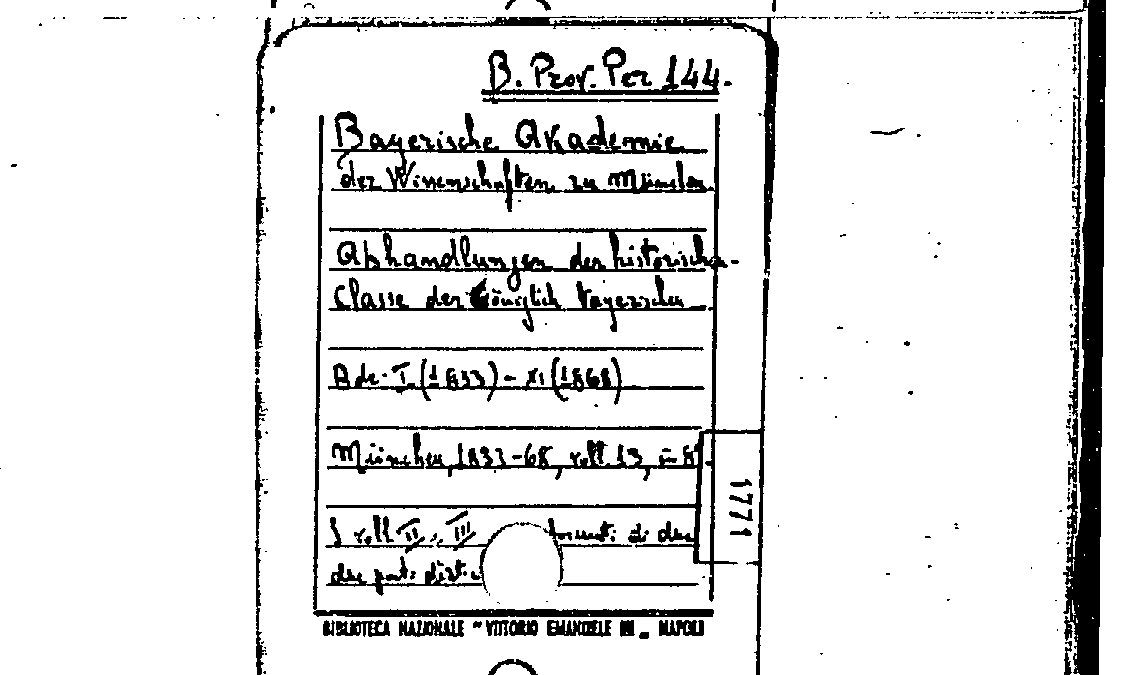 B. Prov. Per 144.
Bayerische Akademie
der Wissenschaften zu München.
Abhandlungen der historischen
Classe der Königlich bayerischen
Bde. I (1833) - XI (1868)
München, 1833-68, voll. 13, in 8°.
I voll. II, III formati di due
due parti
1771
BIBLIOTECA NAZIONALE "VITTORIO EMANUELE III - NAPOLI